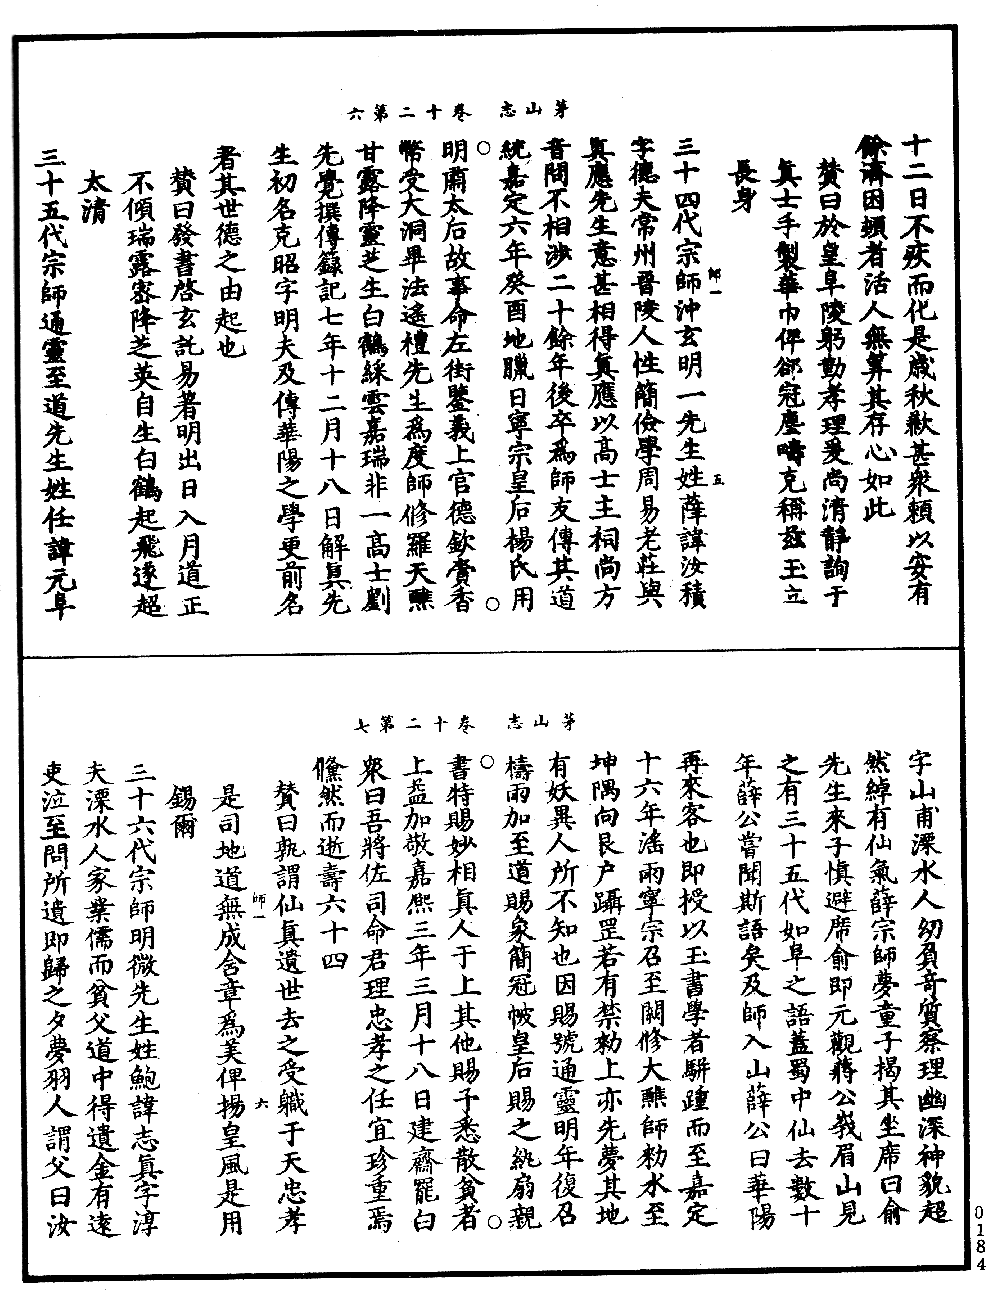 茅山志　卷十二第六
十二日不疾而化是歲秋歉甚衆賴以安有
餘濟困頓者活人無筭其存心如此
贊曰於皇阜陵躬勤孝理爰尚清靜詢于
真士手製華巾俾卻冠塵疇克稱茲玉立
長身
師一　五
三十四代宗師沖玄明一先生姓薛諱汝積
字德夫常州晉陵人性簡儉學周易老莊與
真應先生意甚相得真應以高士主祠尚方
音問不相涉二十餘年後卒爲師友傳其道
統嘉定六年癸酉地臘日寧宗皇后楊氏用
○明肅太后故事命左街鑒義上官德欽賫香○
幣受大洞畢法遙禮先生爲度師修羅天醮
甘露降靈芝生白鶴綵雲嘉瑞非一高士劉
先覺撰傳籙記七年十二月十八日解真先
生初名克昭字明夫及傳華陽之學更前名
者其世德之由起也
贊曰發書啓玄託易著明出日入月道正
不傾瑞露宻降芝英自生白鶴起飛逺超
太清
三十五代宗師通靈至道先生姓任諱元阜
茅山志　卷十二第七
字山甫溧水人幼負奇質察理幽深神貌超
然綽有仙氣薛宗師夢童子揭其坐席曰俞
先生來子慎避席俞即元觀蔣公峩眉山見
之有三十五代如阜之語蓋蜀中仙去數十
年薛公嘗聞斯語矣及師入山薛公曰華陽
再來客也即授以玉書學者駢踵而至嘉定
十六年滛雨寧宗召至闕修大醮師勑水至
坤隅向艮户躡罡若有禁勑上亦先夢其地
有妖異人所不知也因賜號通靈明年復召
禱雨加至道賜象簡冠帔皇后賜之紈扇親
○書特賜妙相真人于上其他賜予悉散貧者○
上益加敬嘉熙三年三月十八日建齋罷白
衆曰吾將佐司命君理忠孝之任宜珍重焉
儵然而逝壽六十四
贊曰孰謂仙真遺世去之受軄于天忠孝
師一　六
是司地道無成含章爲美俾揚皇風是用
錫爾
三十六代宗師明微先生姓鮑諱志真字淳
夫溧水人家業儒而貧父道中得遺金有逺
吏泣至問所遺即歸之夕夢羽人謂父曰汝
0184